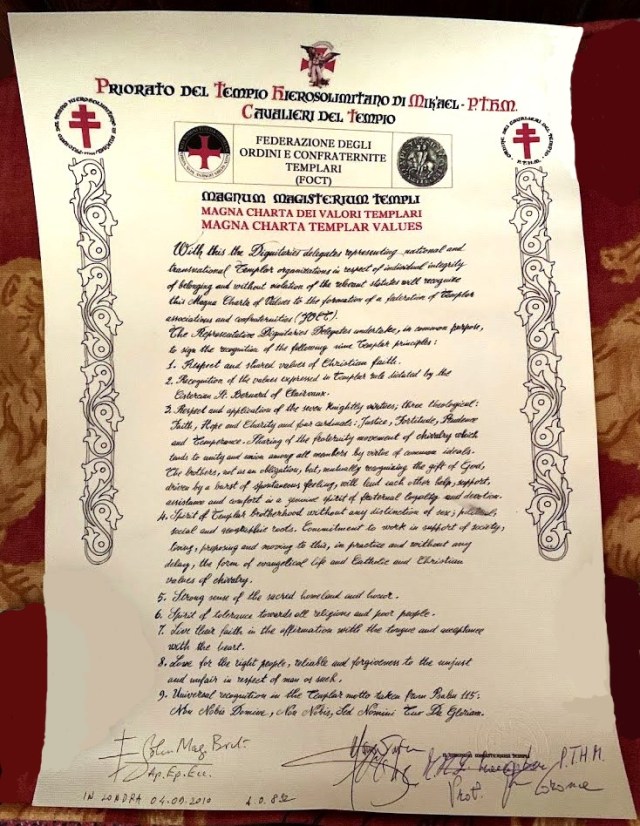 PRIORATO DEL TEMPIO HIEROSOLIMITANO DI MIKAEL - P.T.H.M.
CAVALIERI DEL TEMPIO
FEDERAZIONE DEGLI
ORDINI E CONFRATERNITE
TEMPLARI
(FOCT)
MAGNUM MAGISTERIUM TEMPLI
MAGNA CHARTA DEI VALORI TEMPLARI
MAGNA CHARTA TEMPLAR VALUES
With this the Dignitaries delegates representing national and
transnational Templar organizations in respect of individual integrity
of belonging and without violation of the relevant statutes will recognize
this Magna Charta of Values to the formation of a federation of Templar
associations and confraternities (FOCT).
The Representative Dignitaries Delegates undertake, in common purpose,
to sign the recognition of the following nine Templar principles:
1. Respect and shared values of Christian faith.
2. Recognition of the values expressed in Templar rule dictated by the
Cistercian St. Bernard of Clairvaux.
3. Respect and application of the seven knightly virtues; three theological:
Faith, Hope and Charity and four cardinals: Justice, Fortitude, Prudence
and Temperance. Sharing of the fraternity movement of chivalry which
tends to unity and union among all members by virtue of common ideals.
The brothers, not as an obligation, but, mutually recognizing the gift of God,
driven by a burst of spontaneous feeling, will lend each other help, support,
assistance and comfort in a genuine spirit of fraternal loyalty and devotion.
4. Spirit of Templar brotherhood without any distinction of sex, political,
social and monarchic roots. Commitment to work in support of society,
living, proposing and moving to this, in practice and without any
delay, the form of evangelical life and Catholic and Christian
values of chivalry.
5. Strong sense of the sacred homeland and honor.
6. Spirit of tolerance towards all religions and poor people.
7. Live their faith in the affirmation with the tongue and acceptance
with the heart.
8. Love for the right people, reliable and forgiveness to the unjust
and unfair in respect of man as such.
9. Universal recognition in the Templar motto taken from Psalm 115:
Non Nobis Domine, Non Nobis, Sed Nomini Tuo Da Gloriam.
Ap.Ep.Eu.
P.T.H.M.
IN LONDRA 04.09.2010